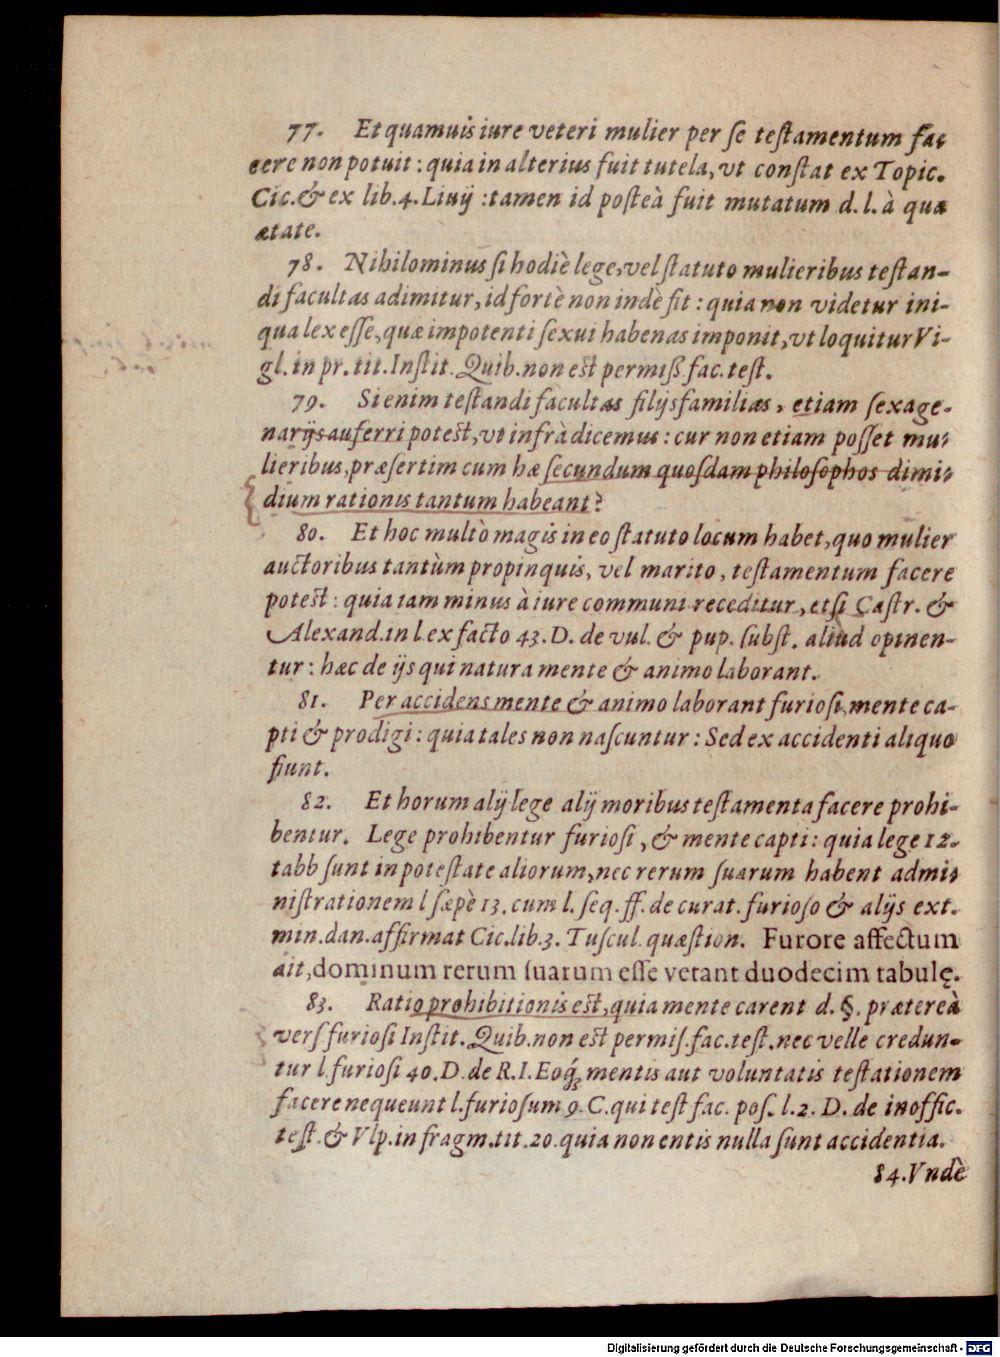 77. Et quamuis iure veteri mulier per se testamentum fa-
cere non potuit : quia in alterius fuit tutela, vt constat ex Topic.
Cic. & ex lib. 4. Liuij : tamen id posteà fuit mutatum d. l. à qua
ætate.
78. Nihilominus si hodiè lege, vel statuto mulieribus testan-
di facultas adimitur, id fortè non indè fit : quia non videtur ini-
qua lex esse, quæ impotenti sexui habenas imponit, vt loquitur Vi-
gl. in pr. tit. Instit. Quib. non est permiss. fac. test.
79. Si enim testandi facultas filijsfamilias, etiam sexage-
narijs auferri potest, vt infrà dicemus : cur non etiam posset mu-
lieribus, præsertim cum hæ secundum quosdam philosophos dimi-
dium rationis tantum habeant?
80. Et hoc multò magis in eo statuto locum habet, quo mulier
auctoribus tantùm propinquis, vel marito, testamentum facere
potest : quia iam minus à iure communi receditur, etsi Castr. &
Alexand. in l. ex facto 43. D. de vul. & pup. subst. aliud opinen-
tur : hæc de ijs qui natura mente & animo laborant.
81. Per accidens mente & animo laborant furiosi, mente ca-
pti & prodigi : quia tales non nascuntur : Sed ex accidenti aliquo
fiunt.
82. Et horum alij lege alij moribus testamenta facere prohi-
bentur. Lege prohibentur furiosi, & mente capti : quia lege 12.
tabb sunt in potestate aliorum, nec rerum suarum habent admi-
nistrationem l sæpè 13. cum l. seq. ff. de curat. furioso & alijs ext.
min. dan. affirmat Cic. lib. 3. Tuscul. quæstion. Furore affectum
ait, dominum rerum suarum esse vetant duodecim tabulę.
83. Ratio prohibitionis est, quia mente carent d. §. prætereà
vers furiosi Instit. Quib. non est permis. fac. test. nec velle credun-
tur l. furiosi 40. D. de R. I. Eoq́; mentis aut voluntatis testationem
facere nequeunt l. furiosum 9. C. qui test fac. pos. l. 2. D. de inoffic.
test. & Vlp. in fragm. tit. 20. quia non entis nulla sunt accidentia.
84. Vndè
Digitalisierung gefördert durch die Deutsche Forschungsgemeinschaft - DFG